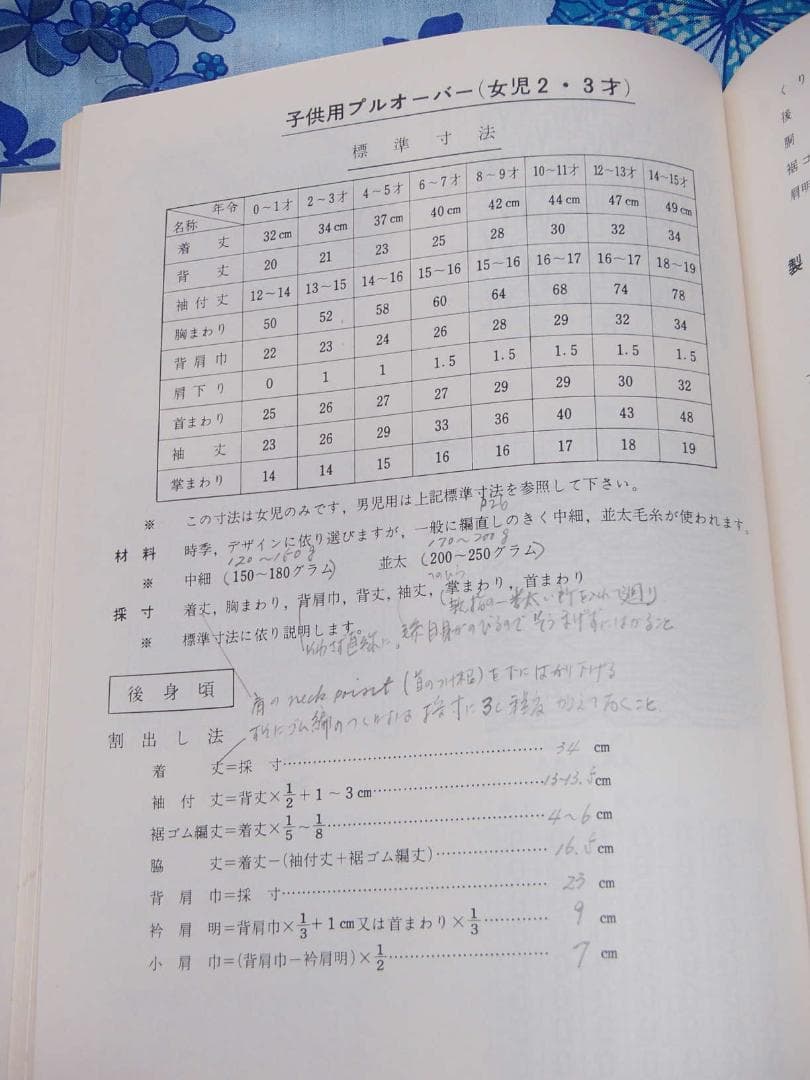 子供用プルオーバー(女児2・3才)
標準寸法
年令 名称 0～1才 2～3才 4～5才 6～7才 8～9才 10～11才 12～13才 14～15才
着丈 32cm 34cm 37cm 40cm 42cm 44cm 47cm 49cm
背丈 20 21 23 25 28 30 32 34
袖付丈 12～14 13～15 14～16 15～16 15～16 16～17 16～17 18～19
胸まわり 50 52 58 60 64 68 74 78
背肩巾 22 23 24 26 28 29 32 34
肩下り 0 1 1 1.5 1.5 1.5 1.5 1.5
首まわり 25 26 27 27 29 29 30 32
袖丈 23 26 29 33 36 40 43 48
掌まわり 14 14 15 16 16 17 18 19
※ この寸法は女児のみです，男児用は上記標準寸法を参照して下さい。
P26
材料 時季，デザインに依り選びますが，一般に編直しのきく中細，並太毛糸が使われます。
120～150g 170～200g
※ 中細(150～180グラム) 並太(200～250グラム)
採寸 着丈，胸まわり，背肩巾，背丈，袖丈，掌まわり，首まわり
※ 標準寸法に依り説明します。
肩の neck point
後身頃
割出し法
着丈＝採寸……34 cm
袖付丈＝背丈×1/2＋1～3cm……13-13.5cm
裾ゴム編丈＝着丈×1/5～1/8……4～6 cm
脇丈＝着丈－(袖付丈＋裾ゴム編丈)……16.5cm
背肩巾＝採寸……23 cm
衿肩明＝背肩巾×1/3＋1cm又は首まわり×1/3……9 cm
小肩巾＝(背肩巾－衿肩明)×1/2……7 cm
くり
後
胴
裾ゴ
肩明
製